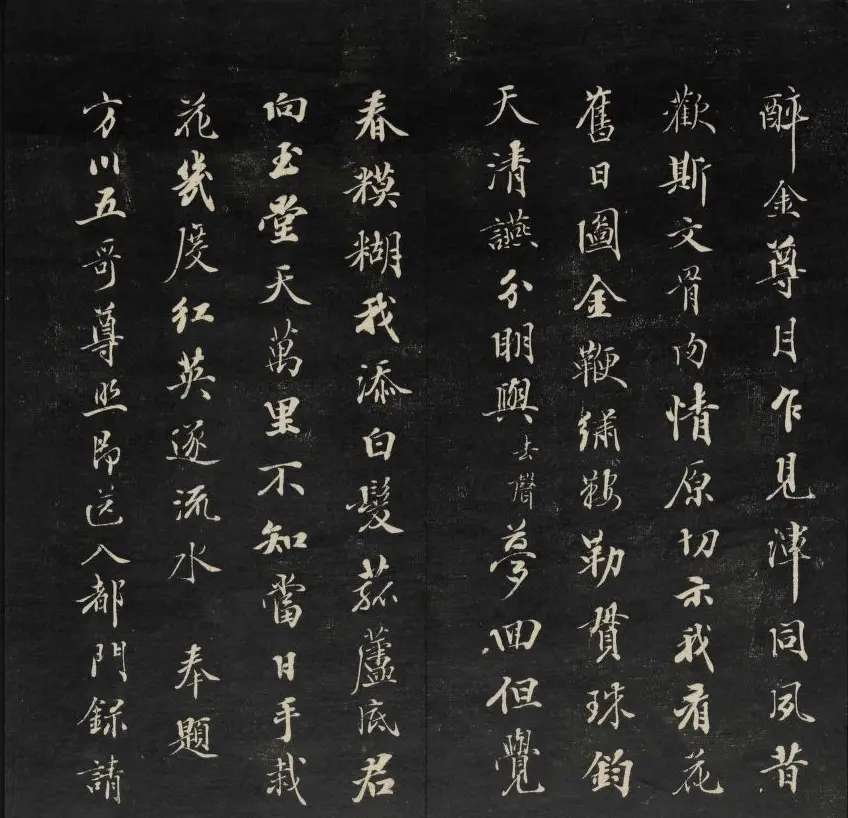 醉金尊月乍見渾同夙昔
歡斯文骨肉情原切示我看花
舊日圖金鞭繡鞍勒賈珠鈞
天清讌分明與去聲夢回但覺
春糢糊我添白髮菰蘆底君
向玉堂天萬里不知當日手栽
花幾度紅英逐流水 奉題
方川五哥尊照即送入都門録請